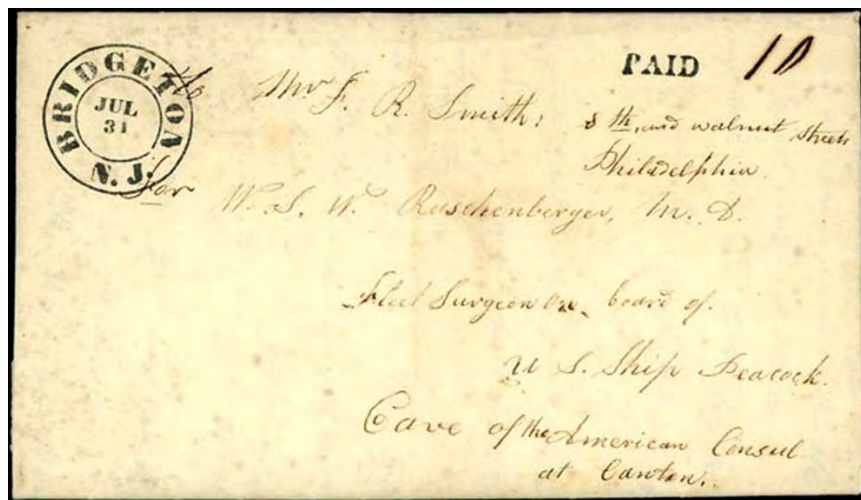 BRIDGETON
JUL
31
N.J.
PAID 10
To Mr F. R. Smith: 8th, and walnut streets
Philadelphia.
For W. S. W. Ruschenberger, M. D.
Fleet Surgeon on board of
U S. Ship Peacock.
Cave of the American Consul
at Canton.